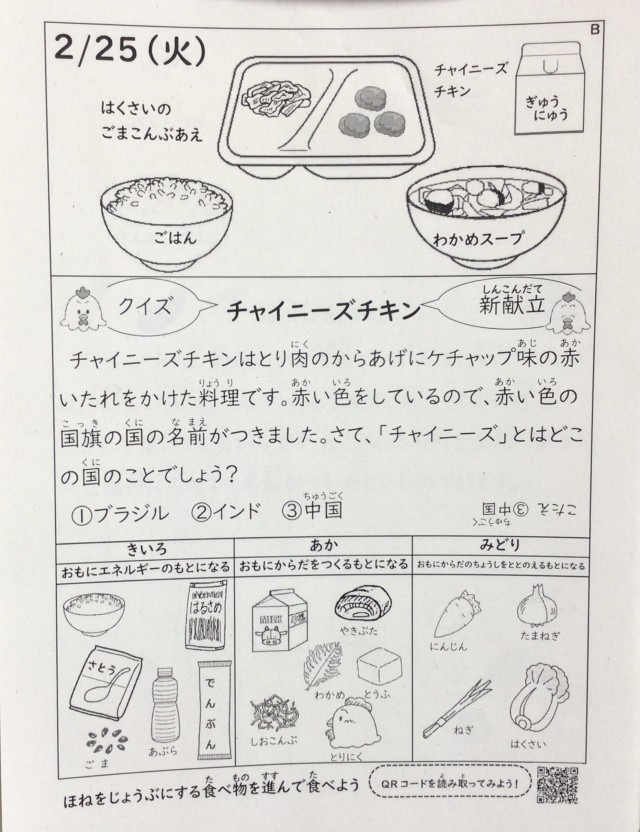 B
2/25（火）
チャイニーズ
チキン
ぎゅう
にゅう
はくさいの
ごまこんぶあえ
ごはん
わかめスープ
クイズ
チャイニーズチキン
しんこんだて
新献立
にく あじ あか
チャイニーズチキンはとり肉のからあげにケチャップ味の赤
りょうり あか いろ あか いろ
いたれをかけた料理です。赤い色をしているので、赤い色の
こっき くに なまえ
国旗の国の名前がつきました。さて、「チャイニーズ」とはどこ
くに
の国のことでしょう？
ちゅうごく
①ブラジル ②インド ③中国
こたえ ③中国
ちゅうごく
きいろ
おもにエネルギーのもとになる
はるさめ
さとう
でんぷん
ごま
あぶら
あか
おもにからだをつくるもとになる
MILK
やきぶた
わかめ
とうふ
しおこんぶ
とりにく
みどり
おもにからだのちょうしをととのえるもとになる
にんじん
たまねぎ
ねぎ
はくさい
た もの すす た
ほねをじょうぶにする食べ物を進んで食べよう
よ と
QRコードを読み取ってみよう！